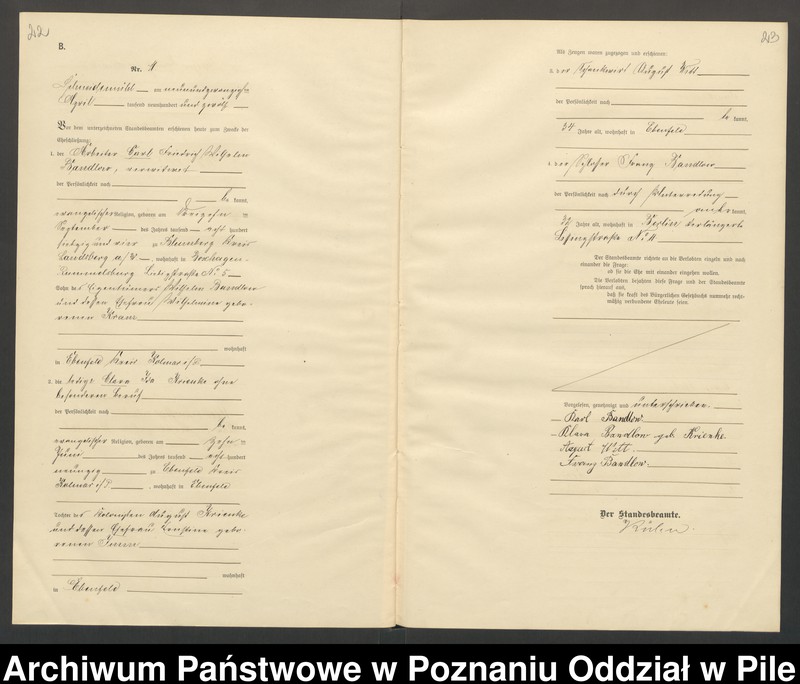 22
B.
Nr. 9
Schneidemühl am neunundzwanzigsten
April tausend neunhundert und zwölf
Vor dem unterzeichneten Standesbeamten erschienen heute zum Zwecke der
Eheschließung:
1. der Arbeiter Carl Friedrich Wilhelm
Bandlow, verwitwet
der Persönlichkeit nach
be kannt,
evangelischer Religion, geboren am
September des Jahres tausend acht hundert
siebzig und vier zu Blumberg Kreis
Landsberg a/W., wohnhaft in Boxhagen
Rummelsburg N: 5
Sohn des Eigenthümers Wilhelm Bandlow
und dessen Ehefrau Wilhelmine gebo-
renen Kranz
wohnhaft
in Ebenfeld Kreis Kolmar i/P.
2. die ledige Clara Ida Krienke ohne
besonderen Beruf
der Persönlichkeit nach
be kannt,
evangelischer Religion, geboren am zehn
Juni des Jahres tausend acht hundert
neunzig zu Ebenfeld Kreis
Kolmar i/P., wohnhaft in Ebenfeld
Tochter des Kolonisten August Krienke
und dessen Ehefrau Ernstine gebo-
renen
wohnhaft
in Ebenfeld
23
Als Zeugen waren zugezogen und erschienen:
3. der Schankwirt August Witt
der Persönlichkeit nach
be kannt,
34 Jahre alt, wohnhaft in Ebenfeld
4. der Schlosser Franz Bandlow
der Persönlichkeit nach durch Unterredung
anerkannt,
Jahre alt, wohnhaft in Berlin verlängerte
N: 11
Der Standesbeamte richtete an die Verlobten einzeln und nach
einander die Frage:
ob sie die Ehe mit einander eingehen wollen.
Die Verlobten bejahten diese Frage und der Standesbeamte
sprach hierauf aus,
daß sie kraft des Bürgerlichen Gesetzbuchs nunmehr recht-
mäßig verbundene Eheleute seien.
Vorgelesen, genehmigt und unterschrieben
Karl Bandlow
Klara Bandlow geb. Krienke
August Witt.
Franz Bandlow.
Der Standesbeamte.
Archiwum Państwowe w Poznaniu Oddział w Pile